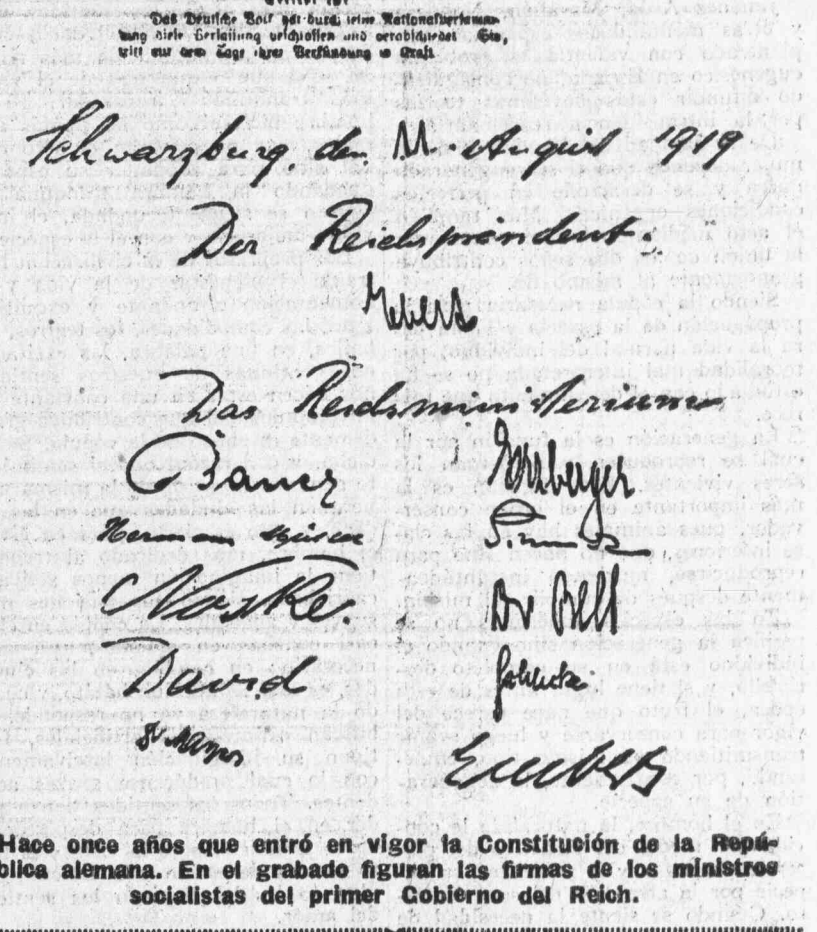 Das Deutsche Volk hat durch seine Nationalversamm-
lung diese Verfassung beschlossen und verabschiedet. Sie
tritt mit dem Tage ihrer Verkündung in Kraft
Schwarzburg den 11. August 1919
Der Reichspräsident.
Ebert
Das Reichsministerium
Bauer Erzberger
Hermann Müller
Noske. Dr Bell
David Schlicke
Dr Mayer
Hace once años que entró en vigor la Constitución de la Repú-
blica alemana. En el grabado figuran las firmas de los ministros
socialistas del primer Gobierno del Reich.